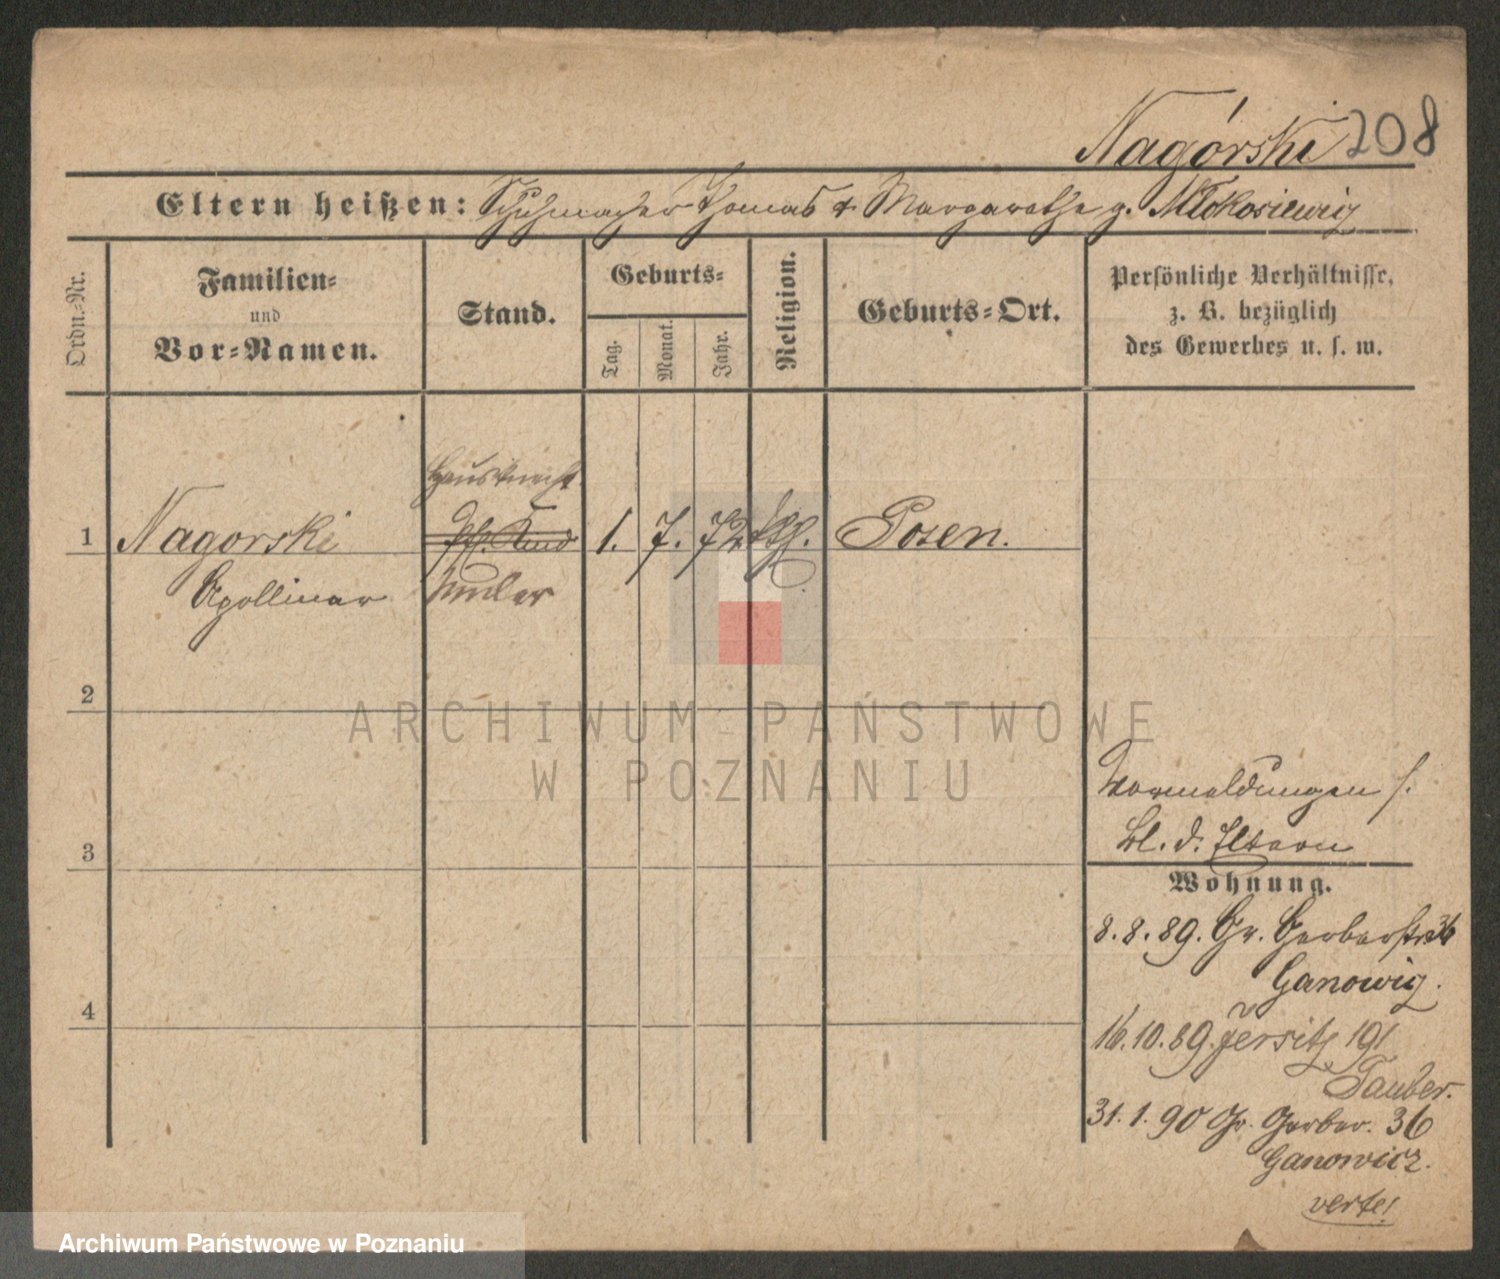 Nagórski 208
Eltern heißen: Schuhmacher Thomas & Margarethe g. Młokosiewicz
Ordn.-Nr.
Familien-
und
Vor-Namen.
Stand.
Geburts-
Tag.
Monat.
Jahr.
Religion.
Geburts-Ort.
Persönliche Verhältnisse,
z. B. bezüglich
des Gewerbes u. s. w.
Hausknecht
1 Nagorski 1. 7. 72 kth. Posen.
Apollinar
2
3
4
Vormeldungen s.
Bl. d. Eltern
Wohnung.
8.8.89. Gr. Gerberstr. 36
Ganowicz.
16.10.89. Jersitz 191
Tauber.
31.1.90 Gr. Gerber. 36
Ganowicz.
verte!
ARCHIWUM PAŃSTWOWE
W POZNANIU
Archiwum Państwowe w Poznaniu